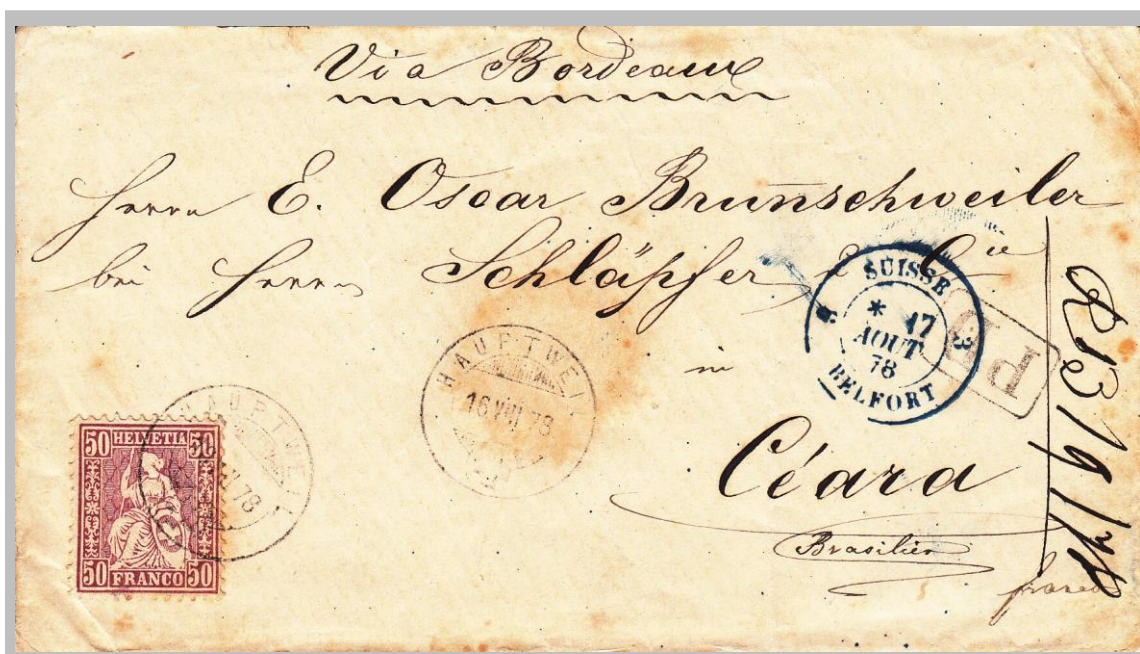 Via Bordeaux
Herrn E. Oscar Brunschweiler
bei Herren Schläpfer & Cie
in
Céara
Brasilien
franco
SUISSE
* 17
AOUT
78
3
BELFORT
PD
HAUPTWEIL
16 VIII 78
HAUPTWEIL
VIII 78
50 HELVETIA 50
50 FRANCO 50